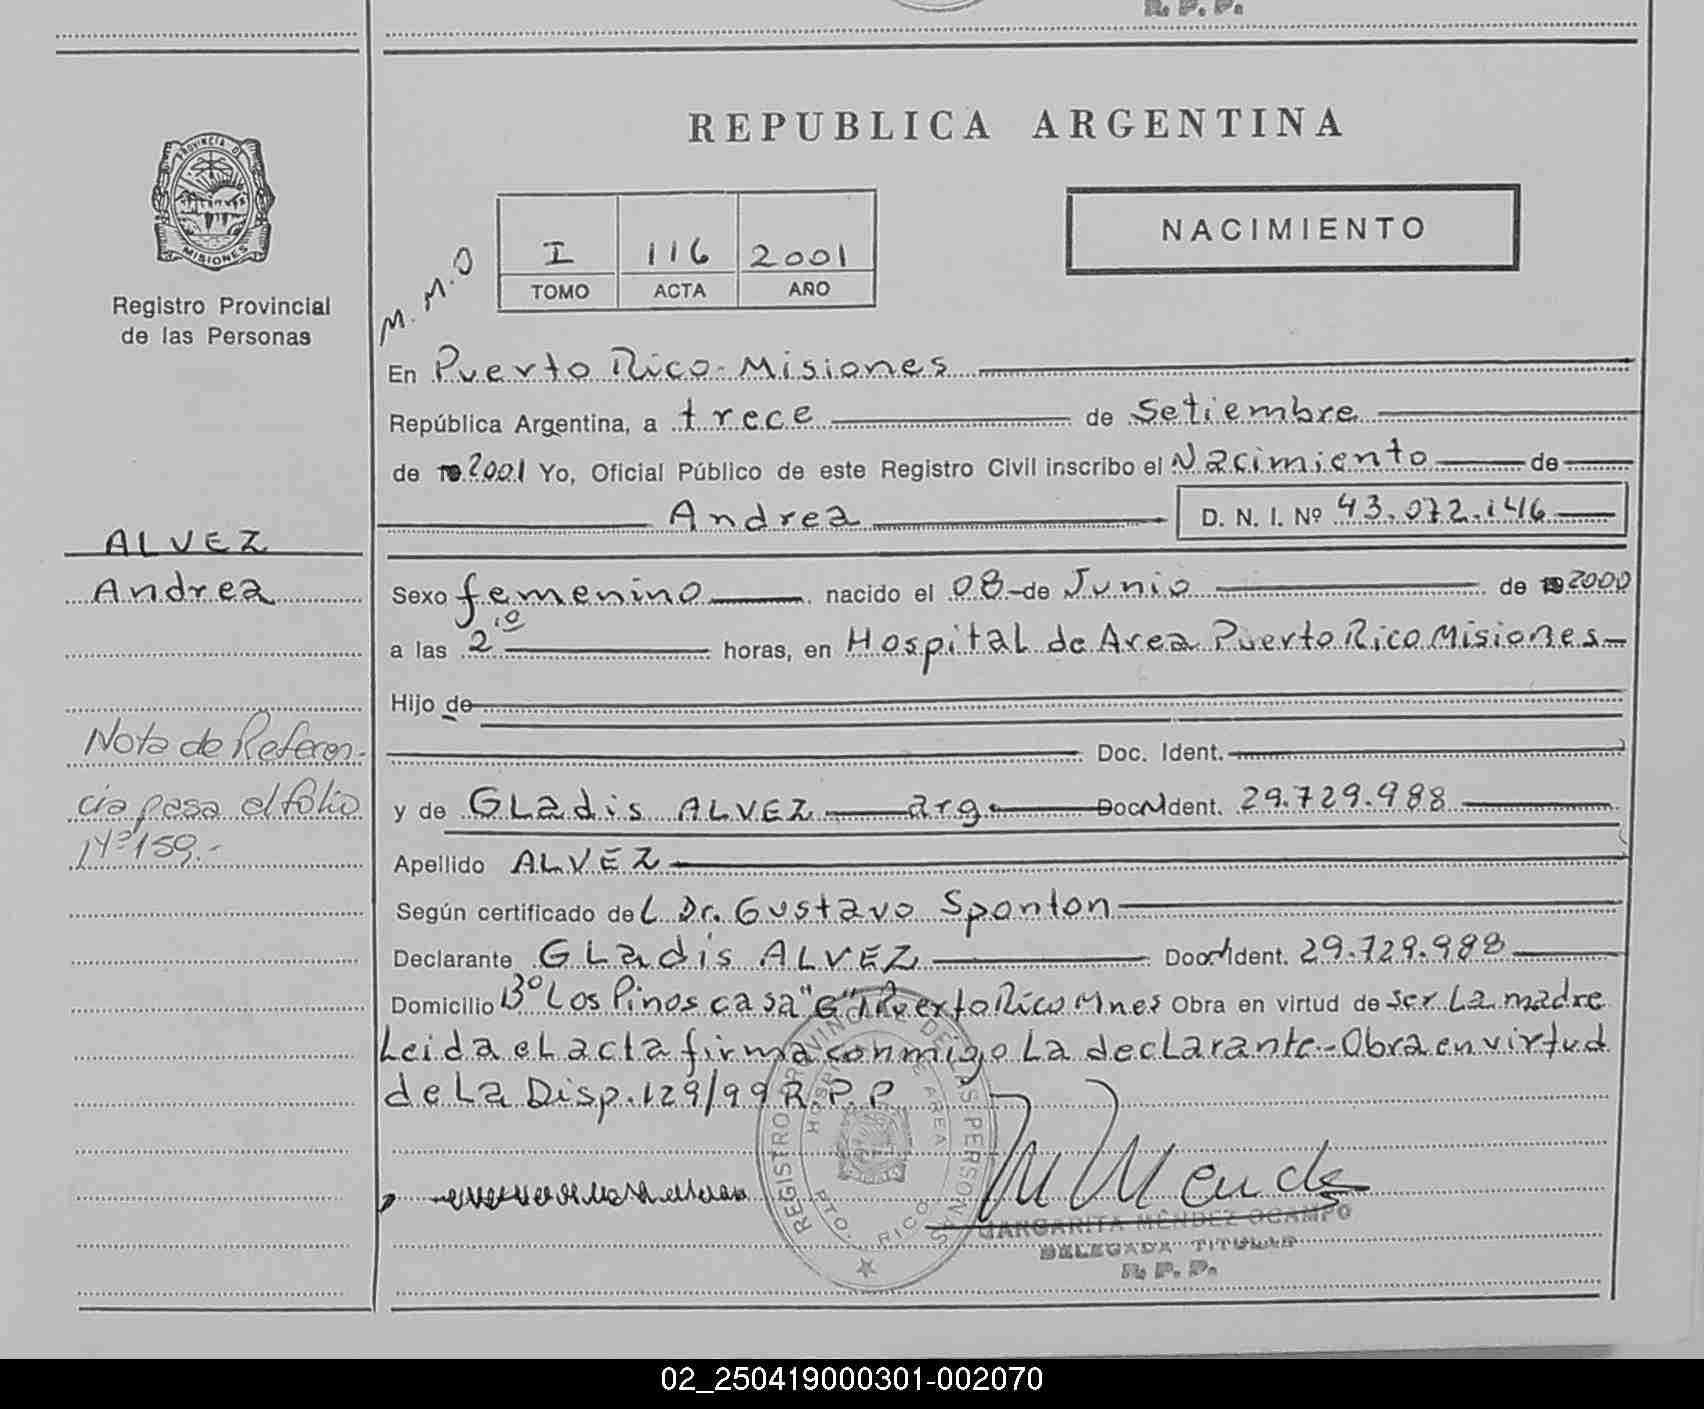 R. P. P.
REPUBLICA ARGENTINA
PROVINCIA DE
MISIONES
Registro Provincial
de las Personas
M.M.O
I 116 2001
TOMO ACTA AÑO
NACIMIENTO
En Puerto Rico-Misiones
República Argentina, a trece de Setiembre
de 2001 Yo, Oficial Público de este Registro Civil inscribo el Nacimiento de
Andrea D. N. I. Nº 43.072.146
ALVEZ
Andrea
Sexo femenino nacido el 08 de Junio de 2000
a las 2,10 horas, en Hospital de Area Puerto Rico Misiones
Hijo de
Doc. Ident.
y de GLadis ALVEZ arg. Doc. Ident. 29.729.988
Apellido ALVEZ
Según certificado deL Dr. Gustavo Sponton
Declarante GLadis ALVEZ Doc. Ident. 29.729.988
Domicilio Bº Los Pinos casa "G" 1 Puerto Rico Mnes Obra en virtud de ser La madre
Leida eL acta firma conmigo La decLarante-Obra en virtud
de La Disp. 129/99 R.P.P
Nota de Referen-
cia pasa al folio
Nº 159.-
REGISTRO PROVINCIAL DE LAS PERSONAS
HOSPITAL DE AREA
PTO. RICO
M Mendez
MARGARITA MÉNDEZ OCAMPO
DELEGADA TITULAR
R. P. P.
02_250419000301-002070